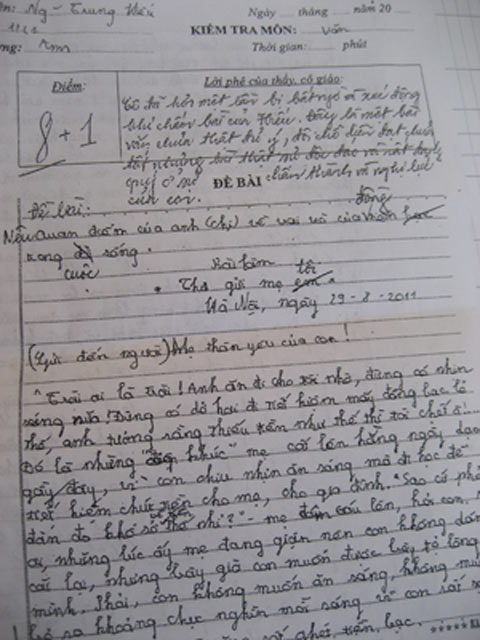 ên: Ng - Trung Hiếu
Ngày tháng năm 20
KIỂM TRA MÔN: Văn
Thời gian: phút
Điểm:
8 + 1
Lời phê của thầy, cô giáo:
Cô đã hơi một lần bị bất ngờ và xúc động
khi chấm bài con Hiếu. Đây là một bài
văn chưa thật
tốt nhưng
quý ở sự chân thành và nghị lực
của con.
ĐỀ BÀI
Đề bài:
Nêu quan điểm của anh (chị) về vai trò của đồng tiền
trong cuộc sống.
Bài làm
Thơ gửi mẹ tôi
Hà Nội, ngày 29 - 8 - 2011
(Gửi đến người) Mẹ thân yêu của con!
"Trời ơi là trời! Anh ăn đi cho tôi nhờ, đừng có nhịn
sáng nữa! Đừng có dở hơi đi tiết kiệm mấy đồng bạc lẻ
thế, anh tưởng rằng thiếu tiền như thế thì tôi chết à!...
Đó là những "khúc" mẹ cất lên hằng ngày, dạo
gần đây, vì con chịu nhịn ăn sáng mà đi học để
tiết kiệm chút tiền cho mẹ, cho gia đình. "Sao có ph
dân đó khổ sở thế nhỉ?" - mẹ
ơi, những lúc ấy mẹ đang giận nên con không dám
cãi lại, nhưng bây giờ con muốn được bày tỏ lòng
mình. Phải, con không muốn ăn sáng, không muốn
bỏ ra khoảng chục nghìn mỗi sáng vì con rất s
ghét tiền bạc.